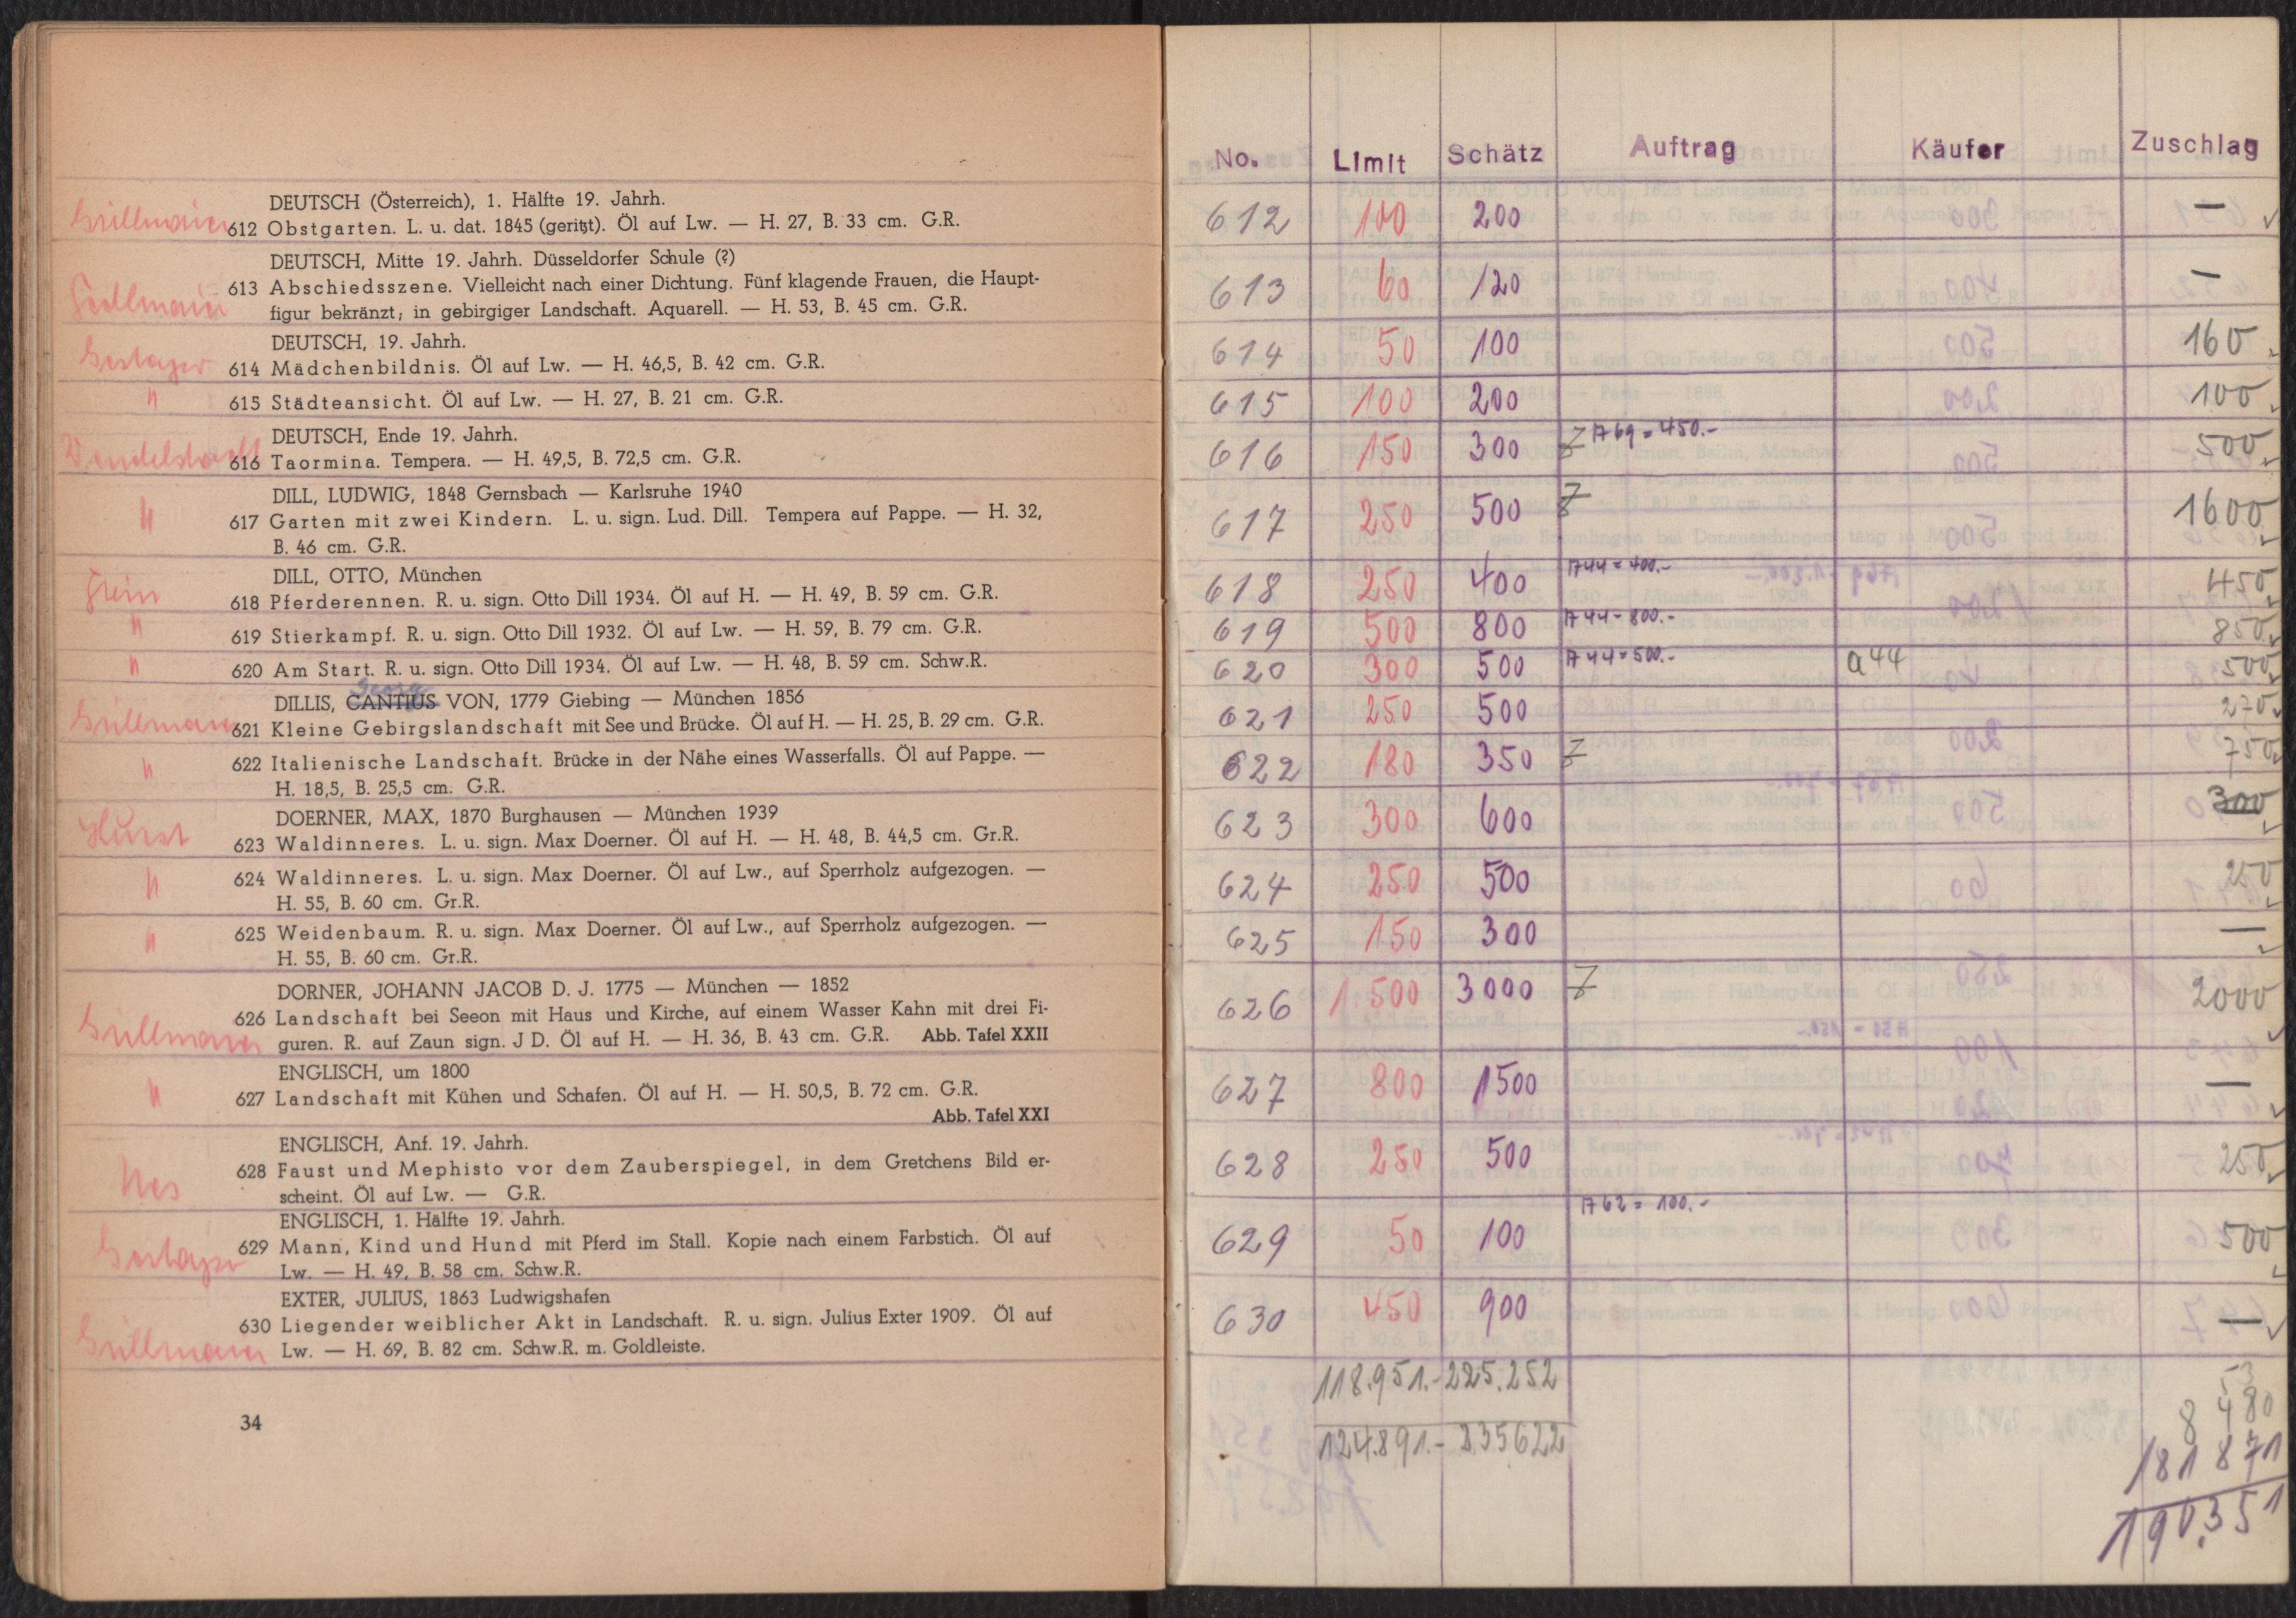 DEUTSCH (Österreich), 1. Hälfte 19. Jahrh.
612 Obstgarten. L. u. dat. 1845 (geritzt). Öl auf Lw. — H. 27, B. 33 cm. G.R.
DEUTSCH, Mitte 19. Jahrh. Düsseldorfer Schule (?)
613 Abschiedsszene. Vielleicht nach einer Dichtung. Fünf klagende Frauen, die Haupt-
figur bekränzt; in gebirgiger Landschaft. Aquarell. — H. 53, B. 45 cm. G.R.
DEUTSCH, 19. Jahrh.
614 Mädchenbildnis. Öl auf Lw. — H. 46,5, B. 42 cm. G.R.
" 615 Städteansicht. Öl auf Lw. — H. 27, B. 21 cm. G.R.
DEUTSCH, Ende 19. Jahrh.
616 Taormina. Tempera. — H. 49,5, B. 72,5 cm. G.R.
DILL, LUDWIG, 1848 Gernsbach — Karlsruhe 1940
" 617 Garten mit zwei Kindern. L. u. sign. Lud. Dill. Tempera auf Pappe. — H. 32,
B. 46 cm. G.R.
DILL, OTTO, München
618 Pferderennen. R. u. sign. Otto Dill 1934. Öl auf H. — H. 49, B. 59 cm. G.R.
" 619 Stierkampf. R. u. sign. Otto Dill 1932. Öl auf Lw. — H. 59, B. 79 cm. G.R.
" 620 Am Start. R. u. sign. Otto Dill 1934. Öl auf Lw. — H. 48, B. 59 cm. Schw.R.
Georg
DILLIS, CANTIUS VON, 1779 Giebing — München 1856
621 Kleine Gebirgslandschaft mit See und Brücke. Öl auf H. — H. 25, B. 29 cm. G.R.
" 622 Italienische Landschaft. Brücke in der Nähe eines Wasserfalls. Öl auf Pappe. —
H. 18,5, B. 25,5 cm. G.R.
DOERNER, MAX, 1870 Burghausen — München 1939
Hurst 623 Waldinneres. L. u. sign. Max Doerner. Öl auf H. — H. 48, B. 44,5 cm. Gr.R.
" 624 Waldinneres. L. u. sign. Max Doerner. Öl auf Lw., auf Sperrholz aufgezogen. —
H. 55, B. 60 cm. Gr.R.
" 625 Weidenbaum. R. u. sign. Max Doerner. Öl auf Lw., auf Sperrholz aufgezogen. —
H. 55, B. 60 cm. Gr.R.
DORNER, JOHANN JACOB D. J. 1775 — München — 1852
626 Landschaft bei Seeon mit Haus und Kirche, auf einem Wasser Kahn mit drei Fi-
guren. R. auf Zaun sign. J D. Öl auf H. — H. 36, B. 43 cm. G.R. Abb. Tafel XXII
ENGLISCH, um 1800
" 627 Landschaft mit Kühen und Schafen. Öl auf H. — H. 50,5, B. 72 cm. G.R.
Abb. Tafel XXI
ENGLISCH, Anf. 19. Jahrh.
628 Faust und Mephisto vor dem Zauberspiegel, in dem Gretchens Bild er-
scheint. Öl auf Lw. — G.R.
ENGLISCH, 1. Hälfte 19. Jahrh.
629 Mann, Kind und Hund mit Pferd im Stall. Kopie nach einem Farbstich. Öl auf
Lw. — H. 49, B. 58 cm. Schw.R.
EXTER, JULIUS, 1863 Ludwigshafen
630 Liegender weiblicher Akt in Landschaft. R. u. sign. Julius Exter 1909. Öl auf
Lw. — H. 69, B. 82 cm. Schw.R. m. Goldleiste.
34
No. Limit Schätz Auftrag Käufer Zuschlag
612 100 200 —
613 60 120 —
614 50 100 160
615 100 200 100
616 150 300 Z A 69 = 450.- 500
617 250 500 Z 1600
618 250 400 A 44 = 400.- 450
619 500 800 A 44 - 800.- 850
620 300 500 A 44 = 500.- a 44 500
621 250 500 270
622 180 350 Z 750
623 300 600 300
624 250 500 250
625 150 300 —
626 1500 3000 Z 2000
627 800 1500 —
628 250 500 250
629 50 100 A 62 = 100.- 500
630 450 900 —
118.951.- 225.252
124.891.- 235622
53
8 480
181 871
190.351